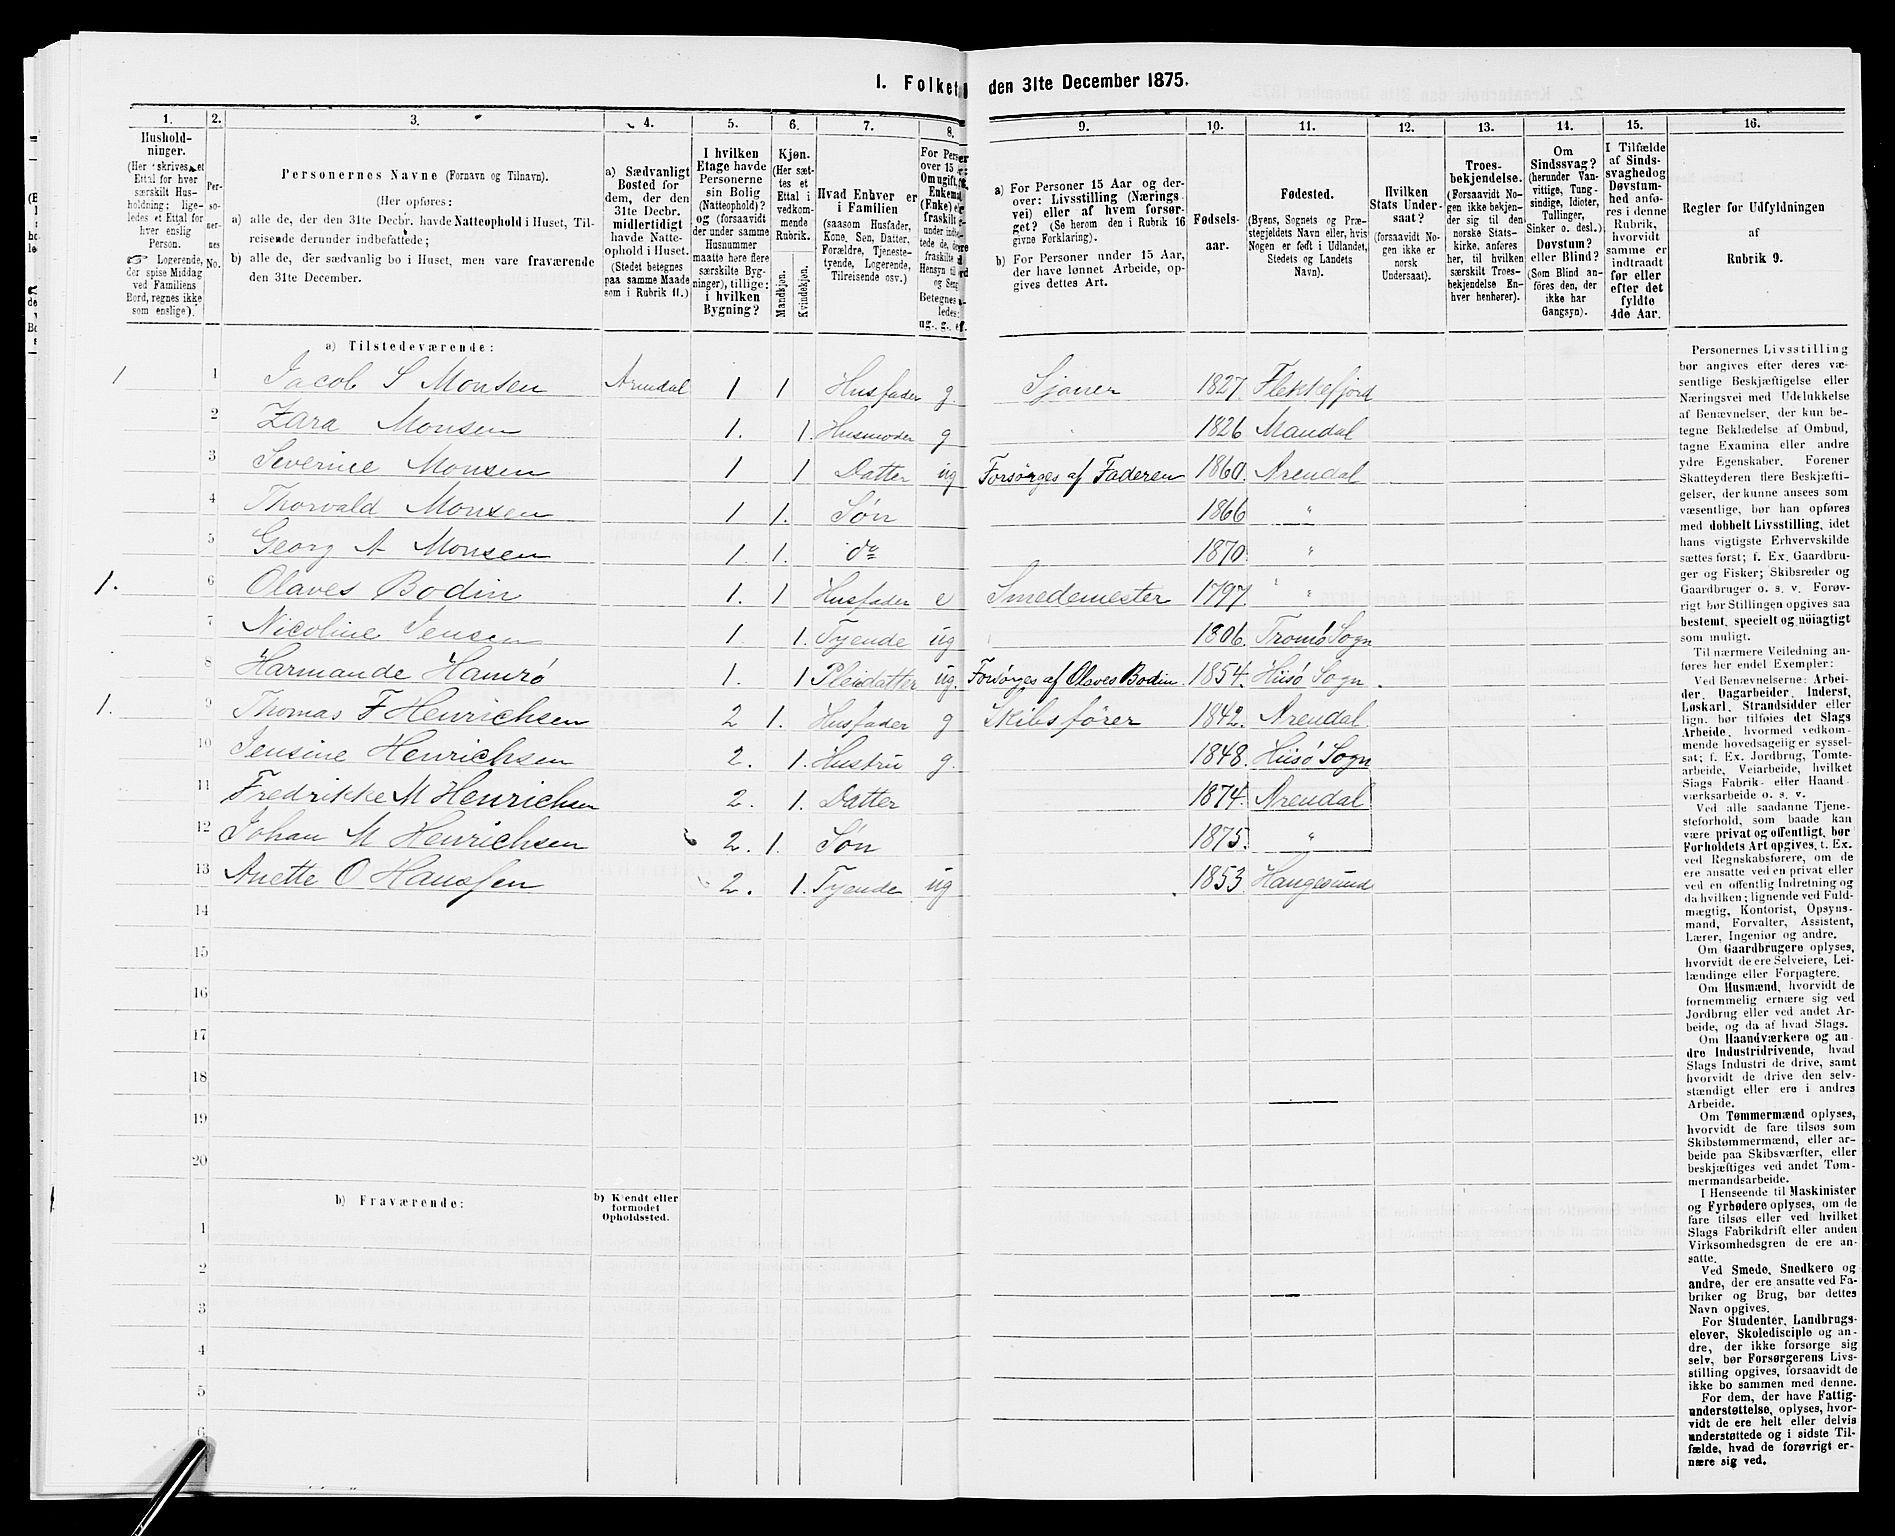 1. Folket den 31te December 1875.
1. 2. 3. 4. 5. 6. 7. 8. 9. 10. 11. 12. 13. 14. 15. 16.
Hushold-
ninger.
(Her skrives et
Ettal for hver
særskilt Hus-
holdning; lige-
ledes et Ettal for
hver enslig
Person.
☞ Logerende,
der spise Middag
ved Familiens
Bord, regnes ikke
som enslige).
Per-
so-
ner-
nes
No.
Personernes Navne (Fornavn og Tilnavn).
(Her opføres:
a) alle de, der den 31te Decbr. havde Natteophold i Huset, Til-
reisende derunder indbefattede;
b) alle de, der sædvanlig bo i Huset, men vare fraværende
den 31te December.
a) Sædvanligt
Bosted for
dem, der den
31te Decbr.
midlertidigt
havde Natte-
ophold i Huset.
(Stedet betegnes
paa samme Maade
som i Rubrik 11.)
I hvilken
Etage havde
Personerne
sin Bolig
(Natteophold)?
og (forsaavidt
der under samme
Husnummer
maatte høre flere
særskilte Byg-
ninger), tillige:
i hvilken
Bygning?
Kjøn.
(Her sæt-
tes et
Ettal i
vedkom-
mende
Rubrik.
Mandkjøn.
Kvindekjøn.
Hvad Enhver er
i Familien
(saasom Husfader,
Kone, Søn, Datter,
Forældre, Tjeneste-
tyende, Logerende,
Tilreisende osv.)
For Perser
over 15
Om ugift,
Enkemand
(Enke) el
fraskilt
under indbe-
ttede de,
fraskilte
Hensyn til
og Seng
Betegnes
ledes:
ug., g., e
a) For Personer 15 Aar og der-
over: Livsstilling (Nærings-
vei) eller af hvem forsør-
get? (Se herom den i Rubrik 16
givne Forklaring).
b) For Personer under 15 Aar,
der have lønnet Arbeide, op-
gives dettes Art.
Fødsels-
aar.
Fødested.
(Byens, Sognets og Præ-
stegjeldets Navn eller, hvis
Nogen er født i Udlandet,
Stedets og Landets
Navn).
Hvilken
Stats Under-
saat?
(forsaavidt No-
gen ikke er
norsk
Undersaat).
Troes-
bekjendelse.
(Forsaavidt No-
gen ikke bekjen-
der sig til den
norske Stats-
kirke, anføres
her, til hvilken
særskilt Troes-
bekjendelse En-
hver henhører).
Om
Sindssvag?
(herunder Van-
vittige, Tung-
sindige, Idioter,
Tullinger,
Sinker o. desl.)
Døvstum?
eller Blind?
(Som Blind an-
føres den, der
ikke har
Gangsyn).
I Tilfælde
af Sinds-
svaghed og
Døvstum-
hed anfø-
res i denne
Rubrik,
hvorvidt
samme er
indtraadt
før eller
efter det
fyldte
4de Aar.
Regler for Udfyldningen
af
Rubrik 9.
a) Tilstedeværende:
1 1 Jacob S Monsen Arendal 1 1 Husfader g. Sjøner 1827. Flekkefjord
2 Zara Monsen 1. 1. Husmoder g 1826 Mandal
3 Severine Monsen 1 1 Datter ug Forsørges af Faderen 1860. Arendal
4 Thorvald Monsen 1 1. Søn 1866 "
5 Georg A Monsen 1. 1. do 1870. "
1. 6 Olaves Bodin 1. 1 Husfader e Smedemester 1797. "
7 Nicoline Jensen 1. 1. Tyende ug 1806. Tromø Sogn
8 Harmande Hamrø 1. 1 Pleidatter ug. Forsørges af Olaves Bodin. 1854. Hiisø Sogn
1. 9 Thomas F Henrichsen 2 1. Husfader g Skibsfører 1842. Arendal
10 Jensine Henrichsen 2. 1. Hustru g. 1848. Hiisø Sogn
11 Fredrikke M Henrichsen 2. 1. Datter 1874. Arendal
12 Johan M Henrichsen 2. 1. Søn 1875. "
13 Anette O Hanssen 2. 1. Tyende ug 1853 Haugesund
14
15
16
17
18
19
20
b) Fraværende:
b) Kjendt eller
formodet
Opholdssted.
1
2
3
4
5
6
Personernes Livsstilling
bør angives efter deres væ-
sentlige Beskjæftigelse eller
Næringsvei med Udelukkelse
af Benævnelser, der kun be-
tegne Beklædelse af Ombud,
tagne Examina eller andre
ydre Egenskaber. Forener
Skatteyderen flere Beskjæfti-
gelser, der kunne ansees som
væsentlige, bør han opføres
med dobbelt Livsstilling, idet
hans vigtigste Erhvervskilde
sættes først; f. Ex. Gaardbru-
ger og Fisker; Skibsreder og
Gaardbruger o. s. v. Forøv-
rigt bør Stillingen opgives saa
bestemt, specielt og nøiagtigt
som muligt.
Til nærmere Veiledning an-
føres her endel Exempler:
Ved Benævnelserne: Arbei-
der, Dagarbeider, Inderst,
Løskarl, Strandsidder eller
lign. bør tilføies det Slags
Arbeide, hvormed vedkom-
mende hovedsagelig er syssel-
sat; f. Ex. Jordbrug, Tomte-
arbeide, Veiarbeide, hvilket
Slags Fabrik- eller Haand-
værksarbeide o. s. v.
Ved alle saadanne Tjene-
steforhold, som baade kan
være privat og offentligt, bør
Forholdets Art opgives, t. Ex.
ved Regnskabsførere, om de
ere ansatte ved en privat eller
ved en offentlig Indretning og
da hvilken; lignende ved Fuld-
mægtig, Kontorist, Opsyns-
mand, Forvalter, Assistent,
Lærer, Ingeniør og andre.
Om Gaardbrugere oplyses,
hvorvidt de ere Selveiere, Lei-
lændinge eller Forpagtere.
Om Husmænd, hvorvidt de
fornemmelig ernære sig ved
Jordbrug eller ved andet Ar-
beide, og da af hvad Slags.
Om Haandværkere og an-
dre Industridrivende, hvad
Slags Industri de drive, samt
hvorvidt de drive den selv-
stændigt eller ere i andres
Arbeide.
Om Tømmermænd oplyses,
hvorvidt de fare tilsøs som
Skibstømmermænd, eller ar-
beide paa Skibsværfter, eller
beskjæftiges ved andet Tøm-
mermandsarbeide.
I Henseende til Maskinister
og Fyrbødere oplyses, om de
fare tilsøs eller ved hvilket
Slags Fabrikdrift eller anden
Virksomhedsgren de ere an-
satte.
Ved Smede, Snedkere og
andre, der ere ansatte ved Fa-
briker og Brug, bør dettes
Navn opgives.
For Studenter, Landbrugs-
elever, Skoledisciple og an-
dre, der ikke forsørge sig
selv, bør Forsørgerens Livs-
stilling opgives, forsaavidt de
ikke bo sammen med denne.
For dem, der have Fattig-
understøttelse, oplyses, hvor-
vidt de ere helt eller delvis
understøttede og i sidste Til-
fælde, hvad de forøvrigt er-
nære sig ved.